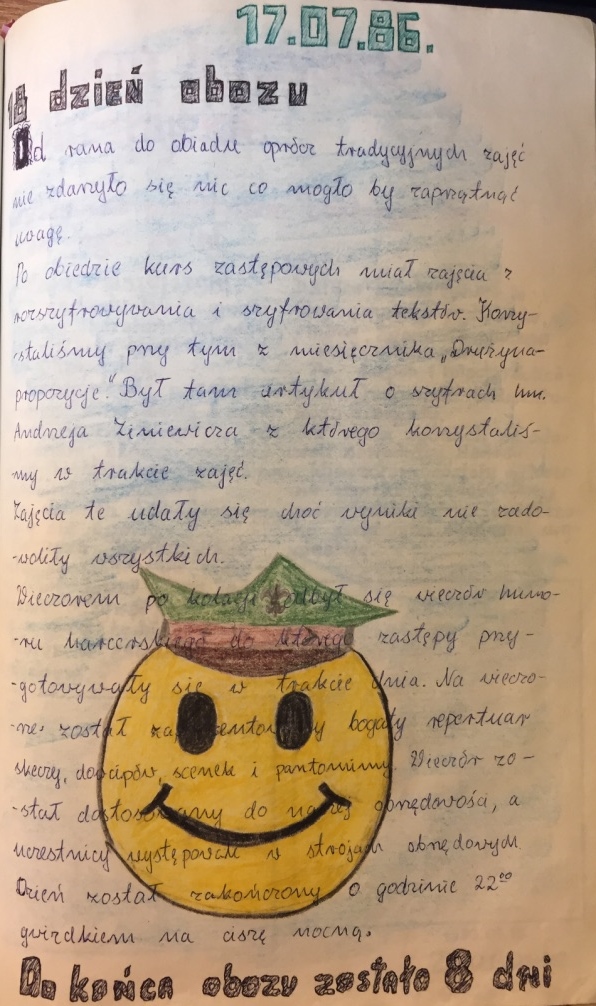 17.07.86.
18 dzień obozu
Od rana do obiadu oprócz tradycyjnych zajęć
nie zdarzyło się nic co mogło by zaprzątnąć
uwagę.
Po obiedzie kurs zastępowych miał zajęcia z
rozszyfrowywania i szyfrowania tekstów. Korzy-
-staliśmy przy tym z miesięcznika „Drużyna-
propozycje". Był tam artykuł o szyfrach hm.
Andrzeja Zimiewicza z którego korzystaliś-
my w trakcie zajęć.
Zajęcia te udały się choć wyniki nie zado-
-woliły wszystkich.
Wieczorem po kolacji odbył się wieczór humo-
-ru harcerskiego do którego zastępy przy-
-gotowywały się w trakcie dnia. Na wieczo-
-rze został zaprezentowany bogaty repertuar
skeczy, dowcipów, scenek i pantomimy. Wieczór zo-
-stał dostosowany do naszej obrzędowości, a
uczestnicy występowali w strojach obrzędowych
Dzień został zakończony o godzinie 22⁰⁰
gwizdkiem na ciszę nocną.
Do końca obozu zostało 8 dni